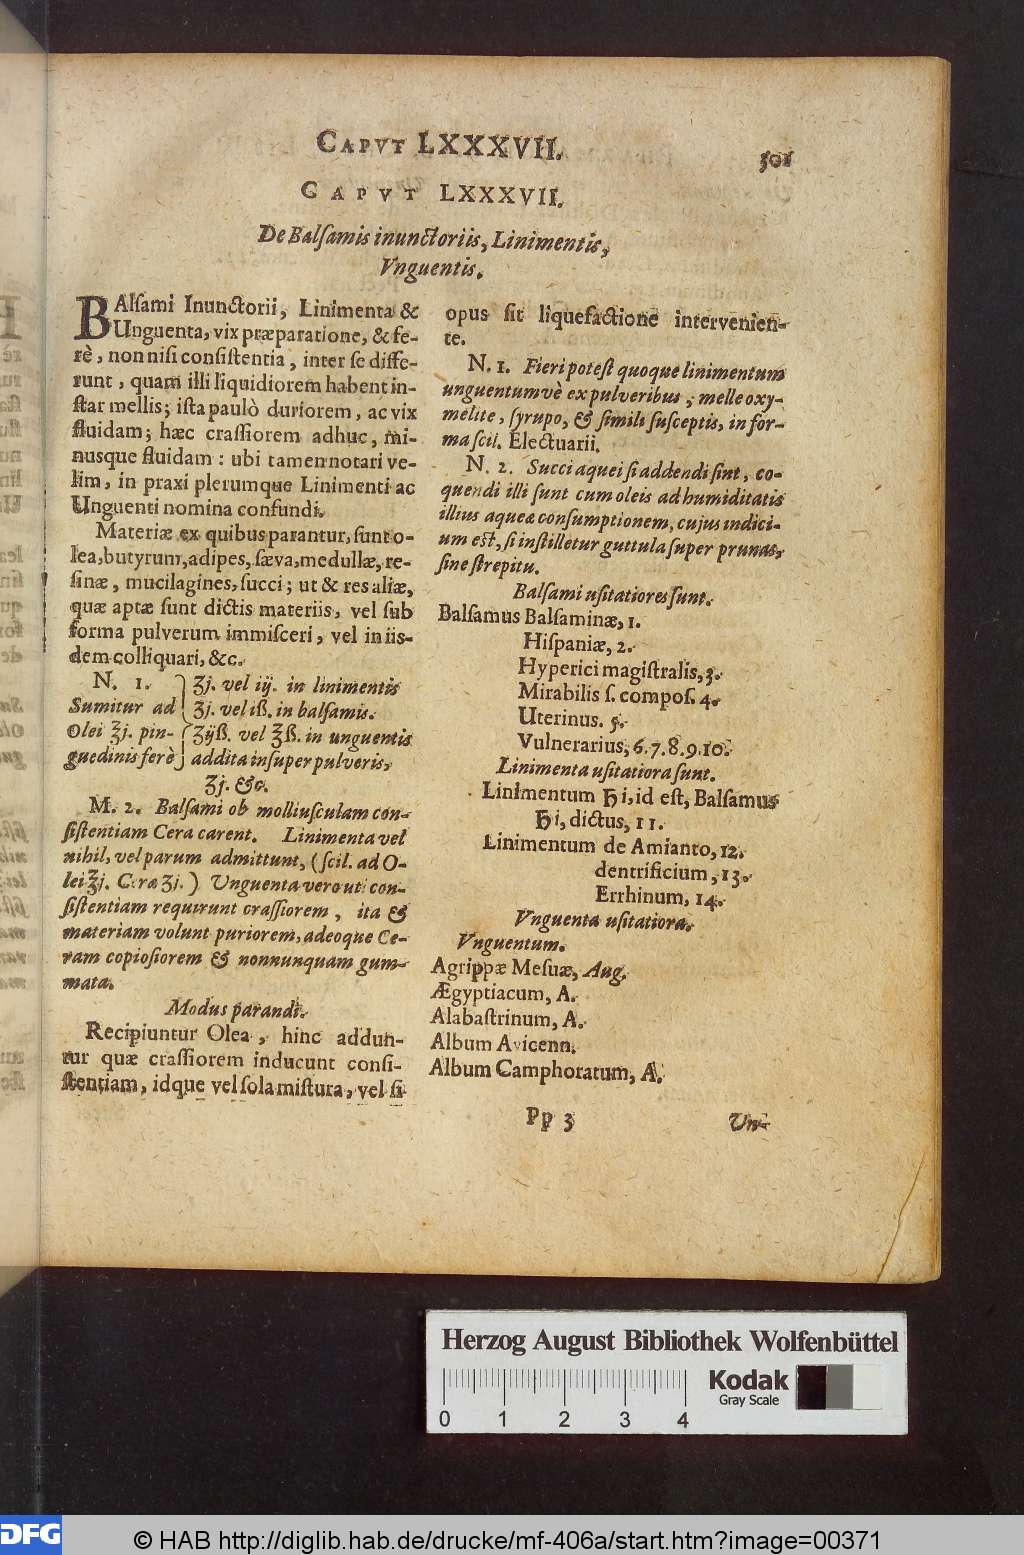 CAPVT LXXXVII.
301
CAPVT LXXXVII.
De Balſamis inunctoriis, Linimentis,
Vnguentis.
BAlſami Inunctorii, Linimenta &
Unguenta, vix præparatione, & fe-
rè, non niſi conſiſtentia, inter ſe diffe-
runt, quam illi liquidiorem habent in-
ſtar mellis; iſta paulò duriorem, ac vix
fluidam; hæc craſſiorem adhuc, mi-
nusque fluidam: ubi tamen notari ve-
lim, in praxi plerumque Linimenti ac
Unguenti nomina confundi.
Materiæ ex quibus parantur, ſunt o-
lea, butyrum, adipes, ſæva, medullæ, re-
ſinæ, mucilagines, ſucci; ut & res aliæ,
quæ aptæ ſunt dictis materiis, vel ſub
forma pulverum immiſceri, vel in iis-
dem colliquari, &c.
N. 1. ʒj. vel iij. in linimentis
Sumitur ad ʒj. vel iß. in balſamis.
Olei ℥j. pin- ʒijß. vel ℥ß. in unguentis
guedinis ferè addita inſuper pulveris,
ʒj. &c.
M. 2. Balſami ob molliuſculam con-
ſiſtentiam Cera carent. Linimenta vel
nihil, vel parum admittunt, (ſcil. ad O-
lei ℥j. Ceræ ʒj.) Unguenta vero uti con-
ſiſtentiam requirunt craſſiorem, ita &
materiam volunt puriorem, adeoque Ce-
ram copioſiorem & nonnunquam gum-
mata.
Modus parandi.
Recipiuntur Olea, hinc addun-
tur quæ craſſiorem inducunt conſi-
ſtentiam, idque vel ſola miſtura, vel ſi
opus ſit liquefactione intervenien-
te.
N. 1. Fieri poteſt quoque linimentum
unguentumvè ex pulveribus, melle oxy-
melite, ſyrupo, & ſimili ſuſceptis, in for-
ma ſcil. Electuarii.
N. 2. Succi aquei ſi addendi ſint, co-
quendi illi ſunt cum oleis ad humiditatis
illius aqueæ conſumptionem, cujus indici-
um est, ſi inſtilletur guttula ſuper prunas,
ſine ſtrepitu.
Balſami uſitatiores ſunt.
Balſamus Balſaminæ, 1.
Hiſpaniæ, 2.
Hyperici magiſtralis, 3.
Mirabilis ſ. compoſ. 4.
Uterinus. 5.
Vulnerarius, 6. 7. 8. 9. 10.
Linimenta uſitatiora ſunt.
Linimentum ♄i, id eſt, Balſamus
♄i, dictus, 11.
Linimentum de Amianto, 12.
dentrificium, 13.
Errhinum, 14.
Vnguenta uſitatiora.
Vnguentum.
Agrippæ Meſuæ, Aug.
Ægyptiacum, A.
Alabaſtrinum, A.
Album Avicenn.
Album Camphoratum, A.
Pp 3
Un-
Herzog August Bibliothek Wolfenbüttel
0 1 2 3 4
Kodak
Gray Scale
DFG
© HAB http://diglib.hab.de/drucke/mf-406a/start.htm?image=00371